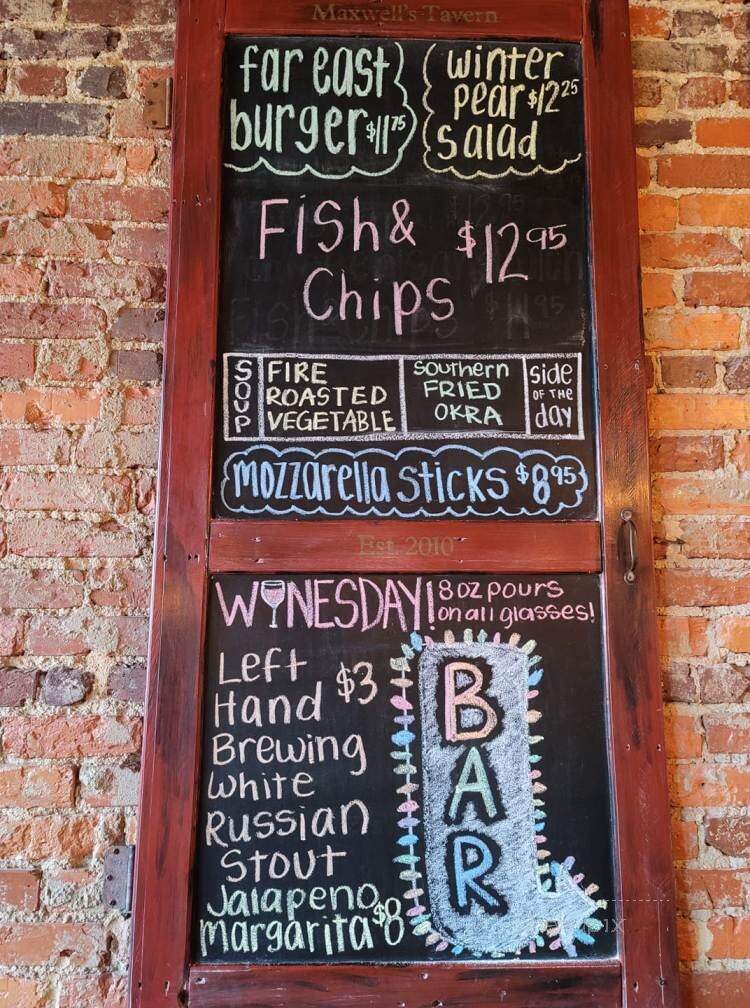 Maxwell's Tavern
far east
burger $11.75
winter
pear $12.25
salad
Fish &
Chips $12.95
SOUP
FIRE
ROASTED
VEGETABLE
Southern
FRIED
OKRA
side
OF THE
day
mozzarella sticks $8.95
Est. 2010
WINESDAY! 8 oz pours
on all glasses!
Left
Hand $3
Brewing
White
Russian
Stout
Jalapeno
margarita $8
BAR